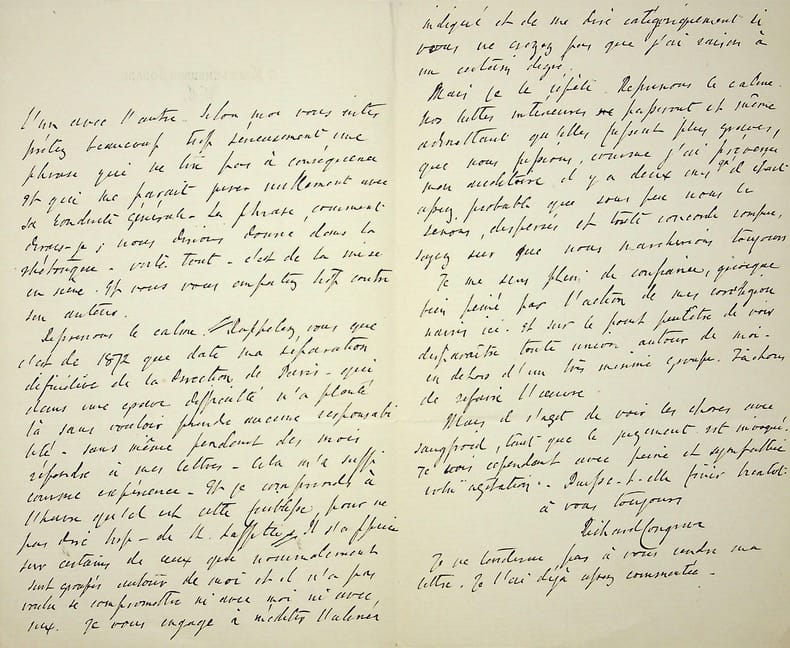 l'un avec l'autre. Selon moi vous inter
prétez beaucoup trop sérieusement une
phrase qui ne tire pas à conséquence
et qui me parait peser nullement avec
sa conduite générale. La phrase, comment
dirais-je; nous dirions donne dans la
rhétorique - voilà tout - c'est de la mise
en scène. Et vous vous emportez trop contre
son auteur.
Reprenons le calme. Rappelez vous que
c'est de 1872 que date ma séparation
définitive de la Direction de Paris - qui
dans une grave difficulté m'a planté
là sans vouloir prendre aucune responsabi
lité - sans même pendant des mois
répondre à mes lettres - Cela m'a suffi
comme expérience - Et je comprends à
l'heure qu'il est cette faiblesse, pour ne
pas dire trop - de M. Laffitte. Il s'appuie
sur certains de ceux que nominalement
sont groupés autour de moi et il n'a pas
voulu se compromettre ni avec moi ni avec
eux. Je vous engage à méditer l'alinéa
indiqué et de me dire catégoriquement si
vous ne croyez pas que j'ai raison à
un certain degré.
Mais je le répète. Reprenons le calme.
Nos luttes intérieures passeront et même
admettant qu'elles fussent plus graves,
que nous fussions, comme j'ai prévenu
mon auditoire il y a deux ans qu'il était
assez probable que sous peu nous le
serons, dispersés et toute concorde rompue,
soyez sûr que nous marcherions toujours
Je me sens plein de confiance, quoique
bien peiné par l'action de mes coreligion
naires ici. Et sur le point peutêtre de voir
disparaître toute union autour de moi -
en dehors d'un très minime groupe. Tâchons
de refaire l'œuvre
Mais il s'agit de voir les choses avec
sangfroid, tout que le jugement est
Je vois cependant avec peine et sympathie
votre agitation - Puisse-t-elle finir bientôt.
à vous toujours
Richard Congreve
Je ne tarderai pas à vous rendre ma
lettre. Je l'ai déjà assez commentée -